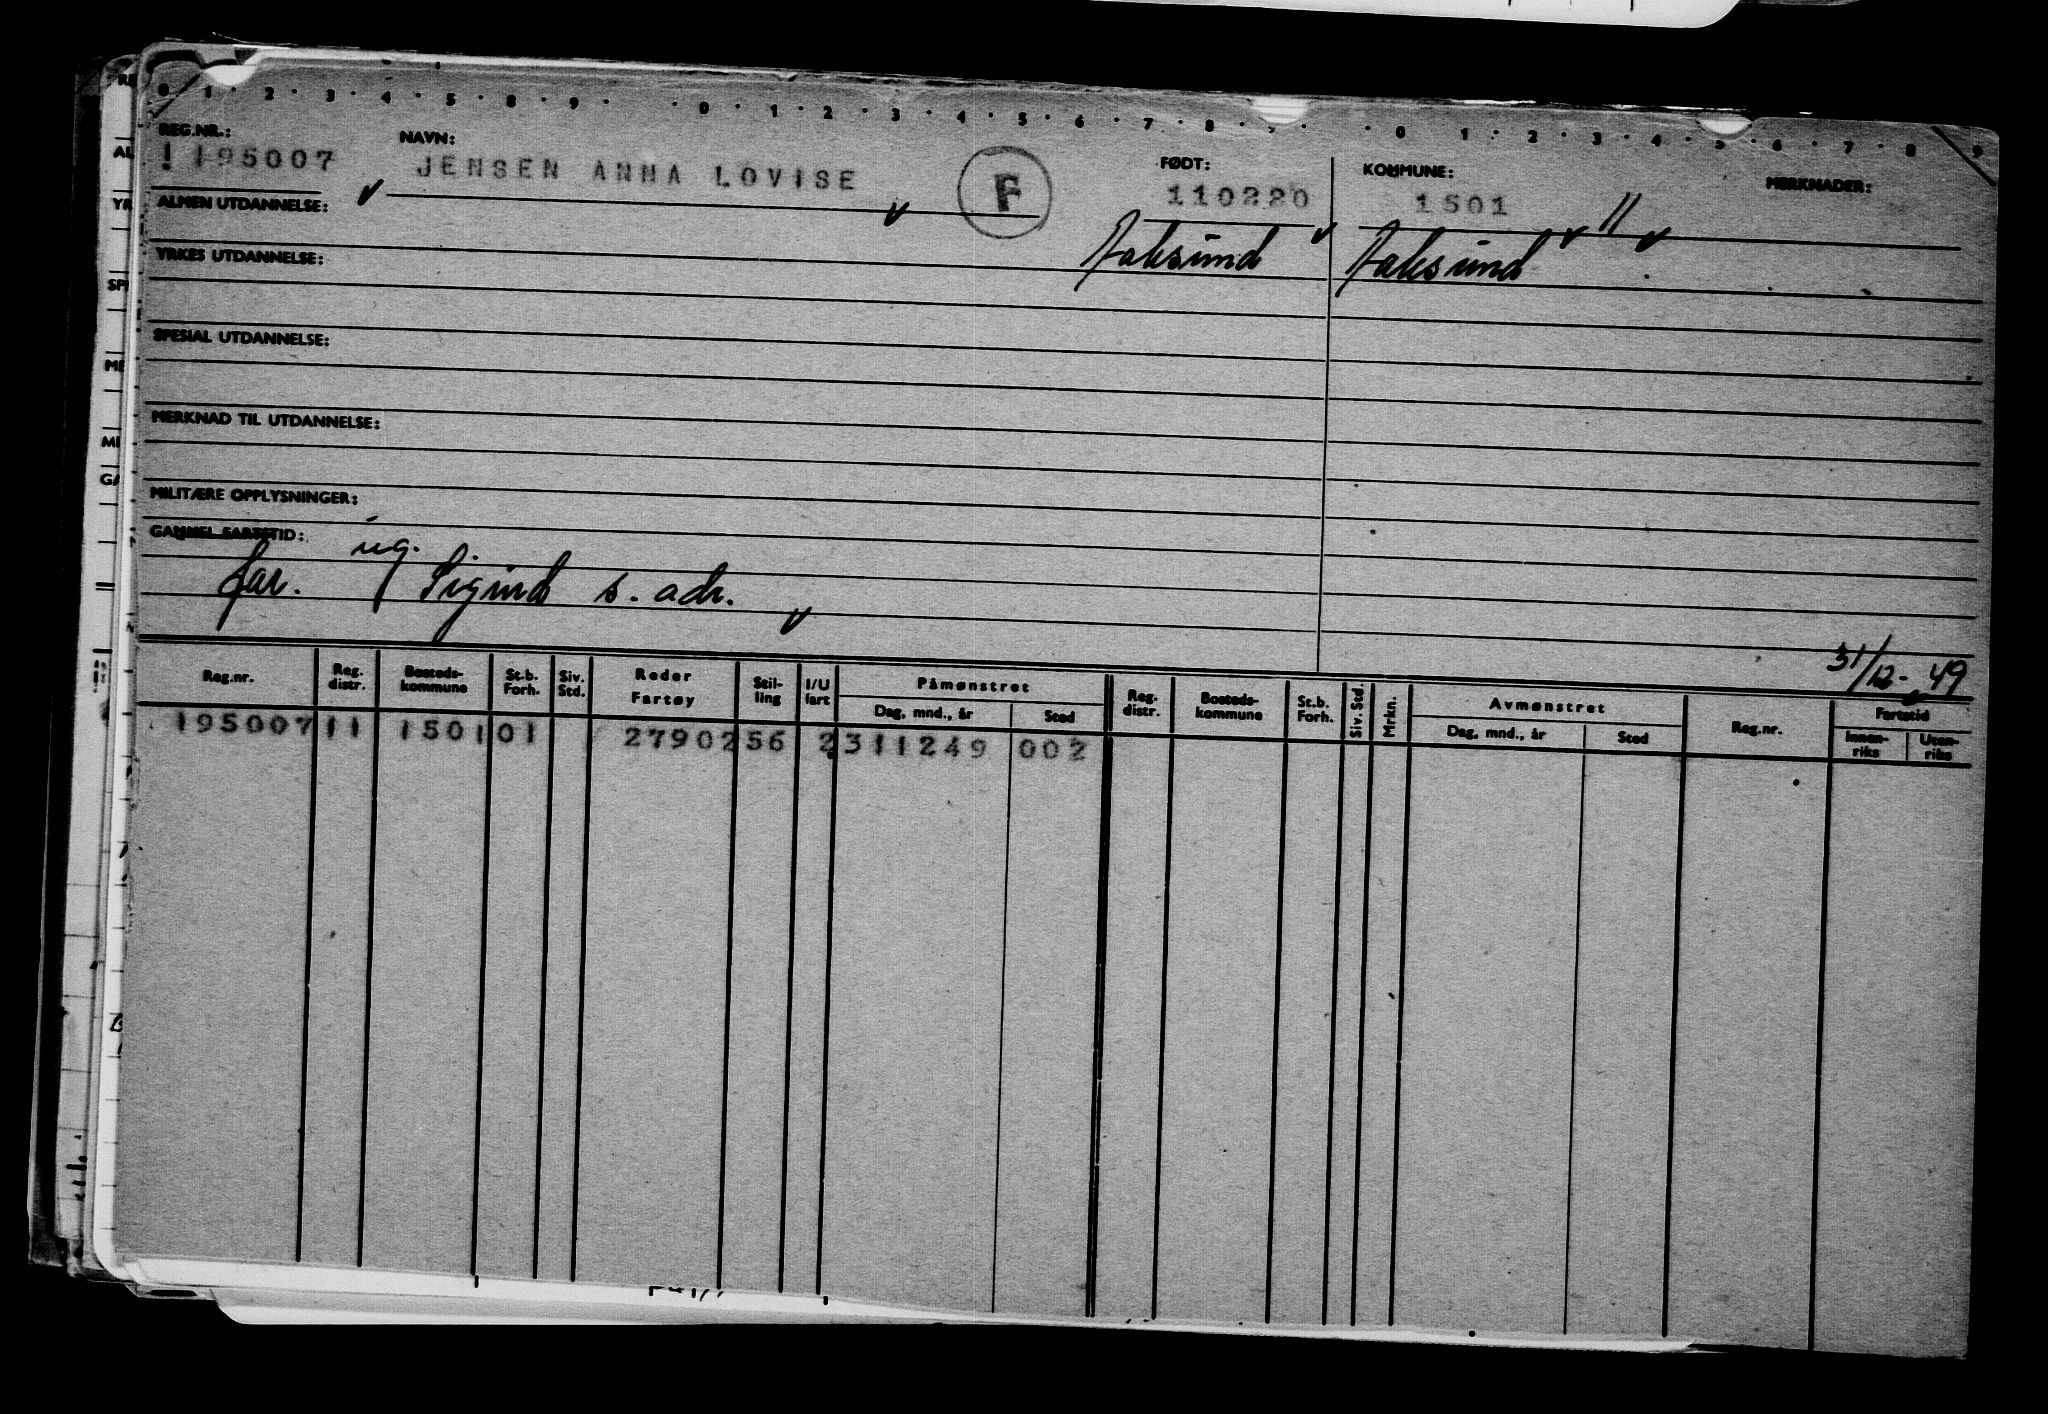 0 · 1 · 2 · 3 · 4 · 5 · 8 · 9 · · 0 · 1 · 2 · 3 · 4 · 5 · 6 · 7 · 8 · · · 0 1 · 2 · 3 · 4 · 5 · 6 · 7 · 8 9
REG.NR.: NAVN: FØDT: KOMMUNE: MERKNADER:
1195007 JENSEN ANNA LOVISE F 110220 1501 11
ALMEN UTDANNELSE:
YRKES UTDANNELSE:
SPESIAL UTDANNELSE:
MERKNAD TIL UTDANNELSE:
MILITÆRE OPPLYSNINGER:
GAMMEL FARTSTID:
ug.
far. Sigurd s. adr.
31/12-49
Reg.nr. Reg. distr. Bosteds-kommune St.b. Forh. Siv. Std. Reder Fartøy Stil-ling I/U fart Påmønstret Dag, mnd., år Sted Reg. distr. Bosteds-kommune St.b. Forh. Siv. Std. Mrkn. Avmønstret Dag, mnd., år Sted Reg.nr. Fartstid Innen-riks Uten-riks
195007 11 1501 01 27902 56 2 311249 002